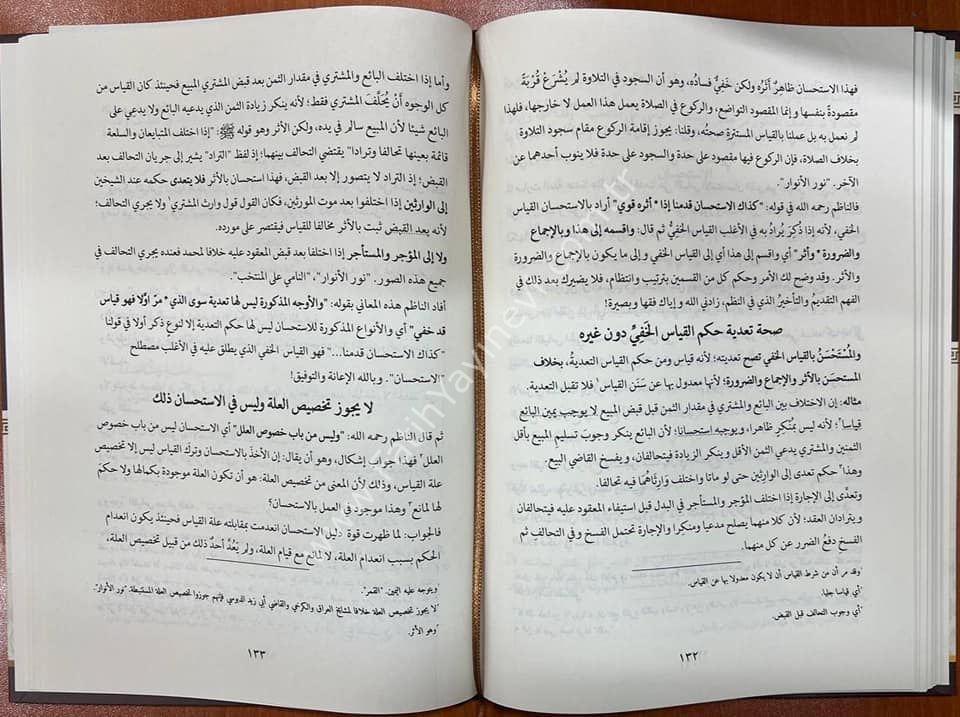 فهذا الاستحسان ظاهرٌ أثرُه ولكن خَفِيٌّ فسادُه، وهو أن السجود في التلاوة لم يُشْرَعْ قُرْبَةً
مقصودةً بنفسها وإنما المقصود التواضع، والركوع في الصلاة يعمل هذا العمل لا خارجها، فلهذا
لم نعمل به بل عملنا بالقياس المستترة صحتُه، وقلنا: يجوز إقامة الركوع مقام سجود التلاوة
بخلاف الصلاة، فإن الركوع فيها مقصود على حدة والسجود على حدة فلا ينوب أحدهما عن
الآخر. "نور الأنوار".
فالناظم رحمه الله في قوله: "كذاك الاستحسان قدمنا إذا * أثره قوي" أراد بالاستحسان القياس
الخفي، لأنه إذا ذُكِرَ يُرادُ به في الأغلب القياس الخَفِيُّ ثم قال: واقسمه إلى هذا وبالإجماع
والضرورة * وأثر" أي واقسم إلى هذا أي إلى القياس الخفي وإلى ما يكون بالإجماع والضرورة
والأثر. وقد وضح لك الأمر وحكم كل من القسمين بترتيب وانتظام، فلا يضيرك بعد ذلك في
الفهم التقديمُ والتأخيرُ الذي في النظم، زادني الله و إياك فقها وبصيرة!
صحة تعدية حكم القياس الخَفِيِّ دون غيره
والمُسْتَحْسَنُ بالقياس الخفي تصح تعديته؛ لأنه قياس ومن حكم القياس التعديةُ، بخلاف
المستحسَن بالأثر والإجماع والضرورة؛ لأنها معدول بها عن سَنَن القياس¹ فلا تقبل التعدية.
مثاله: إن الاختلاف بين البائع والمشتري في مقدار الثمن قبل قبض المبيع لا يوجب يمين البائع
قياسا²؛ لأنه ليس بمنكِرٍ ظاهرا، ويوجبه استحسانا؛ لأن البائع ينكر وجوبَ تسليمِ المبيع بأقل
الثمنين والمشتري يدعي الثمن الأقل وينكر الزيادة فيتحالفان، ويفسخ القاضي البيع.
وهذا³ حكم تعدى إلى الوارِثَين حتى لو ماتا واختلف وَارِثَاهُما فيه تحالفا.
وتعدَّى إلى الإجارة إذا اختلف المؤجر والمستأجر في البدل قبل استيفاء المعقود عليه فيتحالفان
ويترادان العقد؛ لأن كلا منهما يصلح مدعيا ومنكِرا والإجارة تحتمل الفسخ وفي التحالف ثم
الفسخ دفعُ الضرر عن كل منهما.
¹وقد مر أن من شرط القياس أن لا يكون معدولا بها عن القياس.
²أي قياسا جليا.
³أي وجوب التحالف قبل القبض.
١٣٢
وأما إذا اختلف البائع والمشتري في مقدار الثمن بعد قبض المشتري المبيع فحينئذ كان القياس من
كل الوجوه أنْ يُحلَّفَ المشتري فقط؛ لأنه ينكر زيادة الثمن الذي يدعيه البائع ولا يدعي على
البائع شيئا لأن المبيع سالم في يده، ولكن الأثر وهو قوله ﷺ: "إذا اختلف المتبايعان والسلعة
قائمة بعينها تحالفا وترادا" يقتضي التحالف بينهما؛ إذ لفظ "التراد" يشير إلى جريان التحالف بعد
القبض؛ إذ التراد لا يتصور إلا بعد القبض، فهذا استحسان بالأثر فلا يتعدى حكمه عند الشيخين
إلى الوارثين إذا اختلفوا بعد موت المورثين، فكان القول قول وارث المشتري¹ ولا يجري التحالف؛
لأنه بعد القبض ثبت بالأثر مخالفا للقياس فيقتصر على مورده.
ولا إلى المؤجر والمستأجر إذا اختلفا بعد قبض المعقود عليه خلافا لمحمد فعنده يجري التحالف في
جميع هذه الصور. "نور الأنوار"، "النامي على المنتخب".
أفاد الناظم هذه المعاني بقوله: "والأوجه المذكورة ليس لها تعدية سوى الذي * مرّ اوّلا فهو قياس
قد خفي" أي والأنواع المذكورة للاستحسان ليس لها حكم التعدية إلا لنوعٍ ذكر أولا في قولنا
"كذاك الاستحسان قدمنا..." فهو القياس الخفي الذي يطلق عليه في الأغلب مصطلح
"الاستحسان". وبالله الإعانة والتوفيق!
لا يجوز تخصيص العلة وليس في الاستحسان ذلك
ثم قال الناظم رحمه الله: "وليس من باب خصوص العلل" أي الاستحسان ليس من باب خصوص
العلل² فهذا جواب إشكال، وهو أن يقال: إن الأخذَ بالاستحسان وتركَ القياس ليس إلا تخصيص
علة القياس، وذلك لأن المعنى من تخصيص العلة: هو أن تكون العلة موجودة بكمالها ولا حكمَ
لها لمانع³ وهذا موجود في العمل بالاستحسان؟
فالجواب: لما ظهرت قوة دليل الاستحسان انعدمت بمقابلته علة القياس فحينئذ يكون انعدام
الحكم بسبب انعدام العلة، لا لمانع مع قيام العلة، ولم يَعُدَّ أحدٌ ذلك من قبيل تخصيص العلة،
¹ويتوجه عليه اليمين. "القمر".
²لا يجوز تخصيص العلة خلافا لمشايخ العراق والكرخي والقاضي أبي زيد الدبوسي فإنهم جوزوا تخصيص العلة المستنبطة. "نور الأنوار".
³وهو الأثر.
١٣٣
www.zazihYayinevi.com.tr